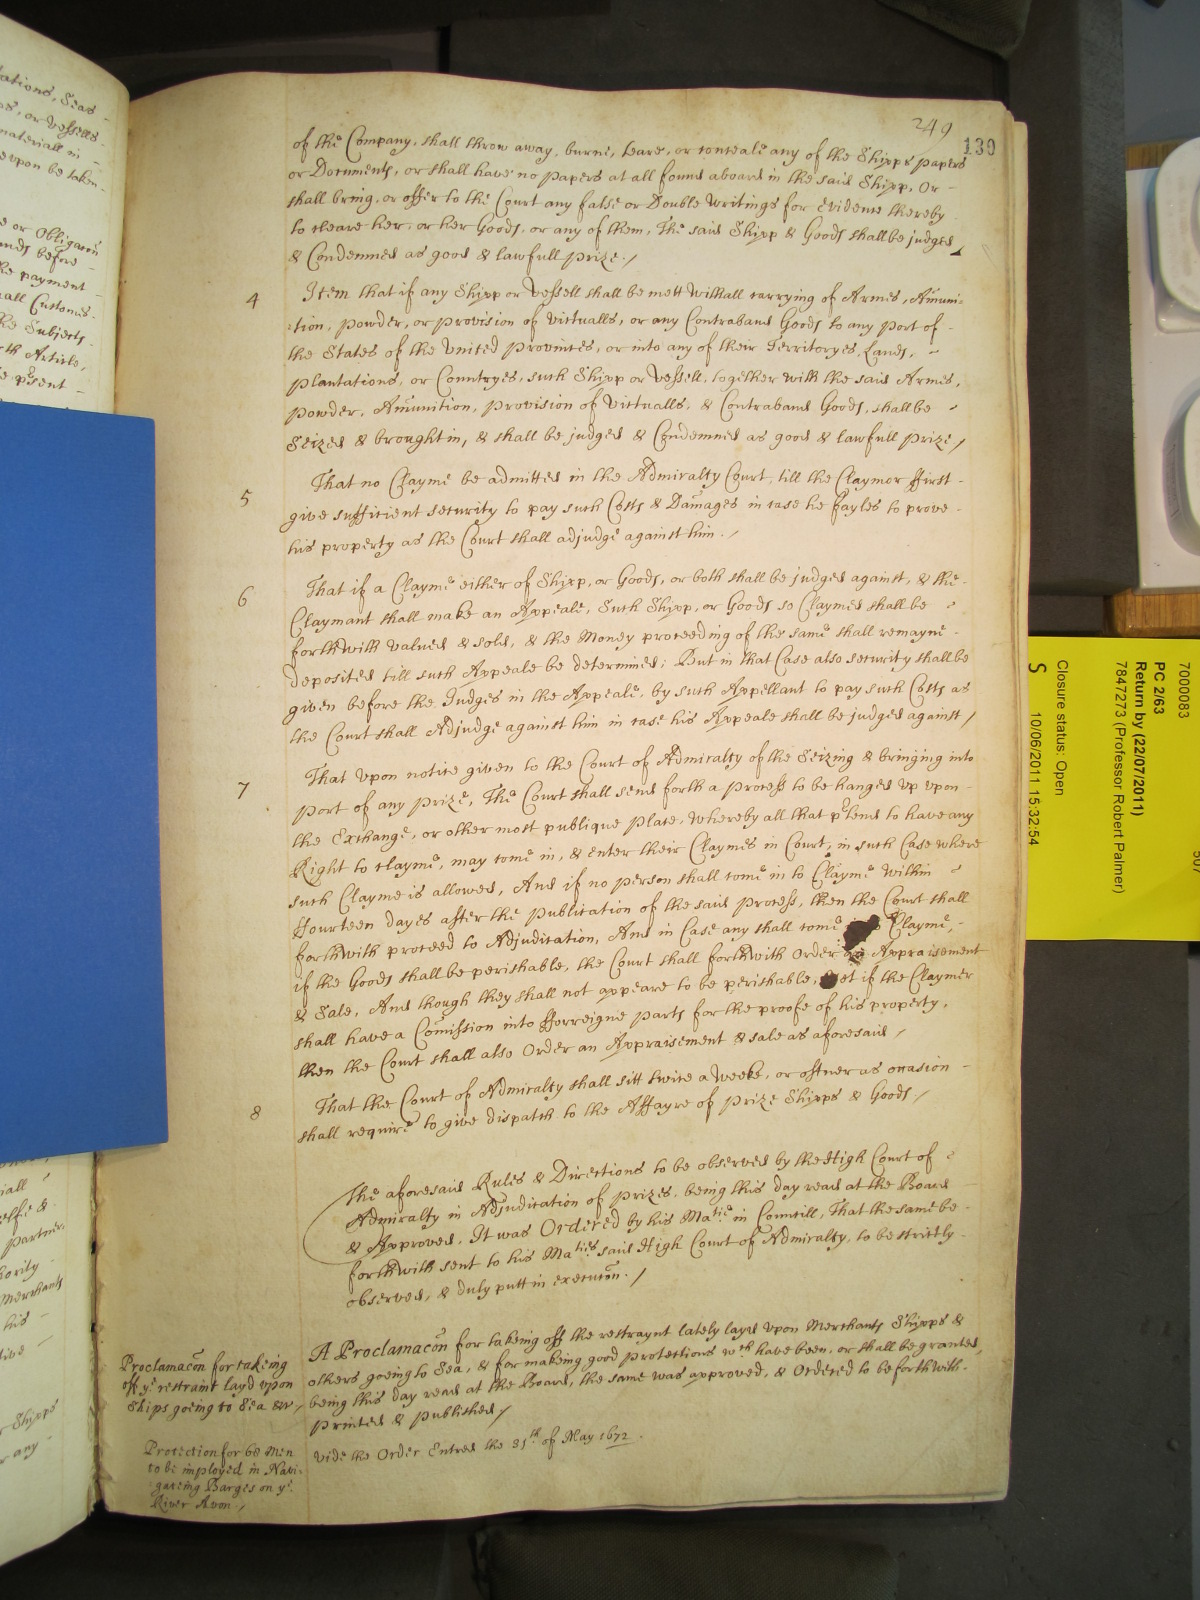 249
130
of the Company, shall throw away, burne, teare, or conceale any of the Shipps papers
or Documents, or shall have no papers at all found aboard in the said Shipp, Or -
shall bring, or offer to the Court any false or Double Writings for Evidence thereby
to cleare her, or her Goods, or any of them, The said Shipp & Goods shall be judged
& Condemned as good & lawfull prize. /
4 Item that if any Shipp or Vessell shall be mett withall carrying of Armes, Amuni-
-tion, powder, or provision of Victualls, or any Contraband Goods to any port of -
the States of the United Provinces, or into any of their Territoryes, Lands, -
plantations, or Countryes, such Shipp or Vessell, together with the said Armes,
powder, Amunition, provision of Victualls, & Contraband Goods, shall be -
Seized & brought in, & shall be judged & Condemned as good & lawfull prize /
5 That no Clayme be admitted in the Admiralty Court, till the Claymer ffirst -
give sufficient security to pay such Costs & Damages in case he fayles to prove -
his property as the Court shall adjudge against him. /
6 That if a Clayme either of Shipp, or Goods, or both shall be judged against, & the -
Claymant shall make an Appeale, Such Shipp, or Goods so Claymed shall be
forthwith valued & sold, & the Money proceeding of the same shall remayne -
deposited till such Appeale be determined; But in that Case also security shall be
given before the Judges in the Appeale, by such Appellant to pay such Costs as
the Court shall Adjudge against him in case his Appeale shall be judged against /
7 That upon notice given to the Court of Admiralty of the Seizing & bringing into
port of any prize, The Court shall send forth a process to be hanged up upon -
the Exchange, or other most publique place, whereby all that ptend to have any
Right to clayme, may come in, & enter their Claymes in Court, in such Case where
such Clayme is allowed, And if no person shall come in to Clayme within
ffourteen dayes after the publication of the said process, then the Court shall
forthwith proceed to Adjudication, And in Case any shall come Clayme, -
if the Goods shall be perishable, the Court shall forthwith Order an Appraisement
& Sale, And though they shall not appeare to be perishable, yet if the Claymer
shall have a Comission into fforreigne parts for the proofe of his property,
then the Court shall also Order an Appraisement & sale as aforesaid /
8 That the Court of Admiralty shall sitt twice a weeke, or oftner as occasion -
shall require to give dispatch to the Affayre of prize Shipps & Goods /
The aforesaid Rules & Directions to be observed by the High Court of
Admiralty in Adjudication of prizes, being this day read at the Board
& Approved, It was Ordered by his Matie in Councill, That the same be -
forthwith sent to his Maties said High Court of Admiralty, to be strictly -
observed, & duly putt in execucon. /
Proclamacon for takeing
off ye restraint layd upon
Ships going to Sea &c /
A Proclamacon for takeing off the restraynt lately layd upon Merchants Shipps &
others goeing to Sea, & for making good protections wch have been, or shall be granted,
being this day read at the Board, the same was approved, & Ordered to be forthwith -
printed & published /
Protection for 60 Men
to be imployed in Navi-
gateing Barges on ye
River Avon /
vide the Order Entred the 31th of May 1672.
7000083
PC 2/63
Return by (22/07/2011)
7847273 (Professor Robert Palmer)
Closure status: Open
S 10/06/2011 15:32:54